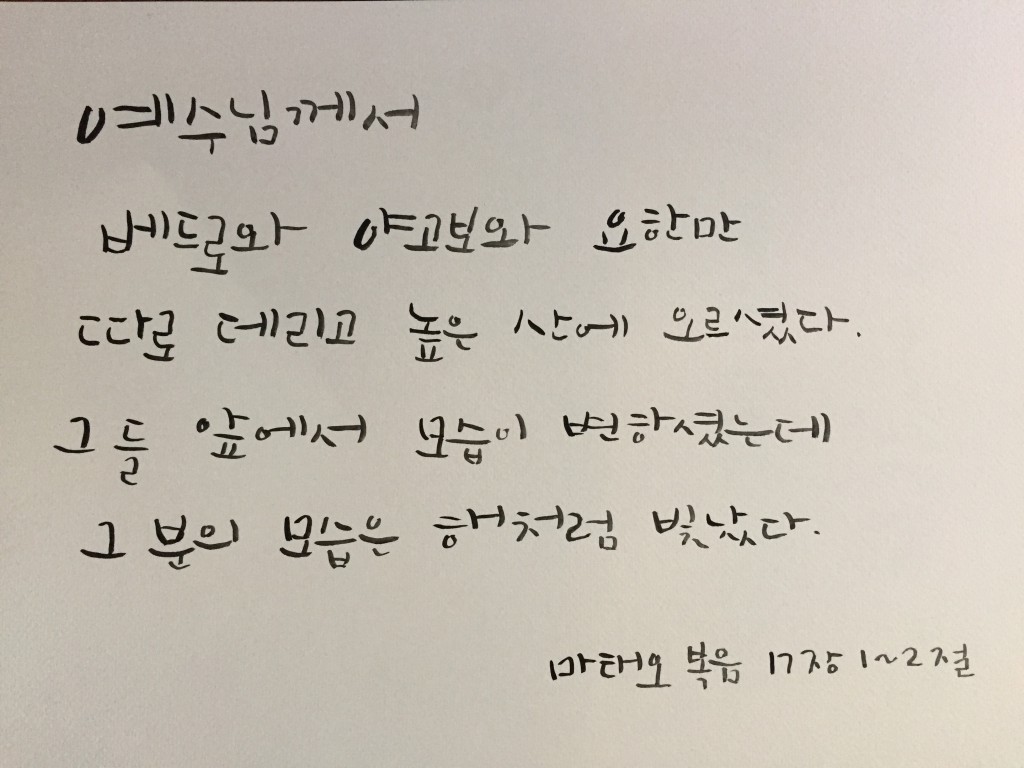 예수님께서
베드로와 야고보와 요한만
따로 데리고 높은 산에 오르셨다.
그들 앞에서 모습이 변하셨는데
그 분의 모습은 해처럼 빛났다.
마태오 복음 17장 1~2절